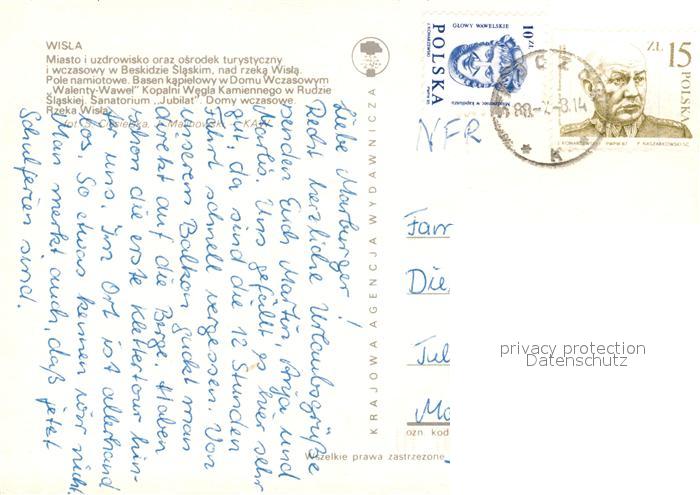 WISŁA
Miasto i uzdrowisko oraz ośrodek turystyczny
i wczasowy w Beskidzie Śląskim, nad rzeką Wisłą.
Pole namiotowe. Basen kąpielowy w Domu Wczasowym
„Walenty-Wawel" Kopalni Węgla Kamiennego w Rudzie
Śląskiej. Sanatorium „Jubilat". Domy wczasowe.
Rzeka Wisła
KAW
Liebe Marburger!
Recht herzliche Urlaubsgrüße
senden Euch Martin, Anja und
Marlis. Uns gefällt es hier sehr
gut, da sind die 12 Stunden
Fahrt schnell vergessen. Von
unserem Balkon guckt man
direkt auf die Berge. Haben
schon die erste Klettertour hin-
ter uns. Im Ort ist allerhand
los. So etwas kennen wir nicht.
Man merkt auch, daß jetzt
Schulferien sind.
KRAJOWA AGENCJA WYDAWNICZA
Wszelkie prawa zastrzeżone
GŁOWY WAWELSKIE
10 ZŁ
POLSKA
ZŁ 15
POLSKA
88-7-8.14
NFR
Fam
Die
Jul
Ma
ozn. kod
privacy protection
Datenschutz